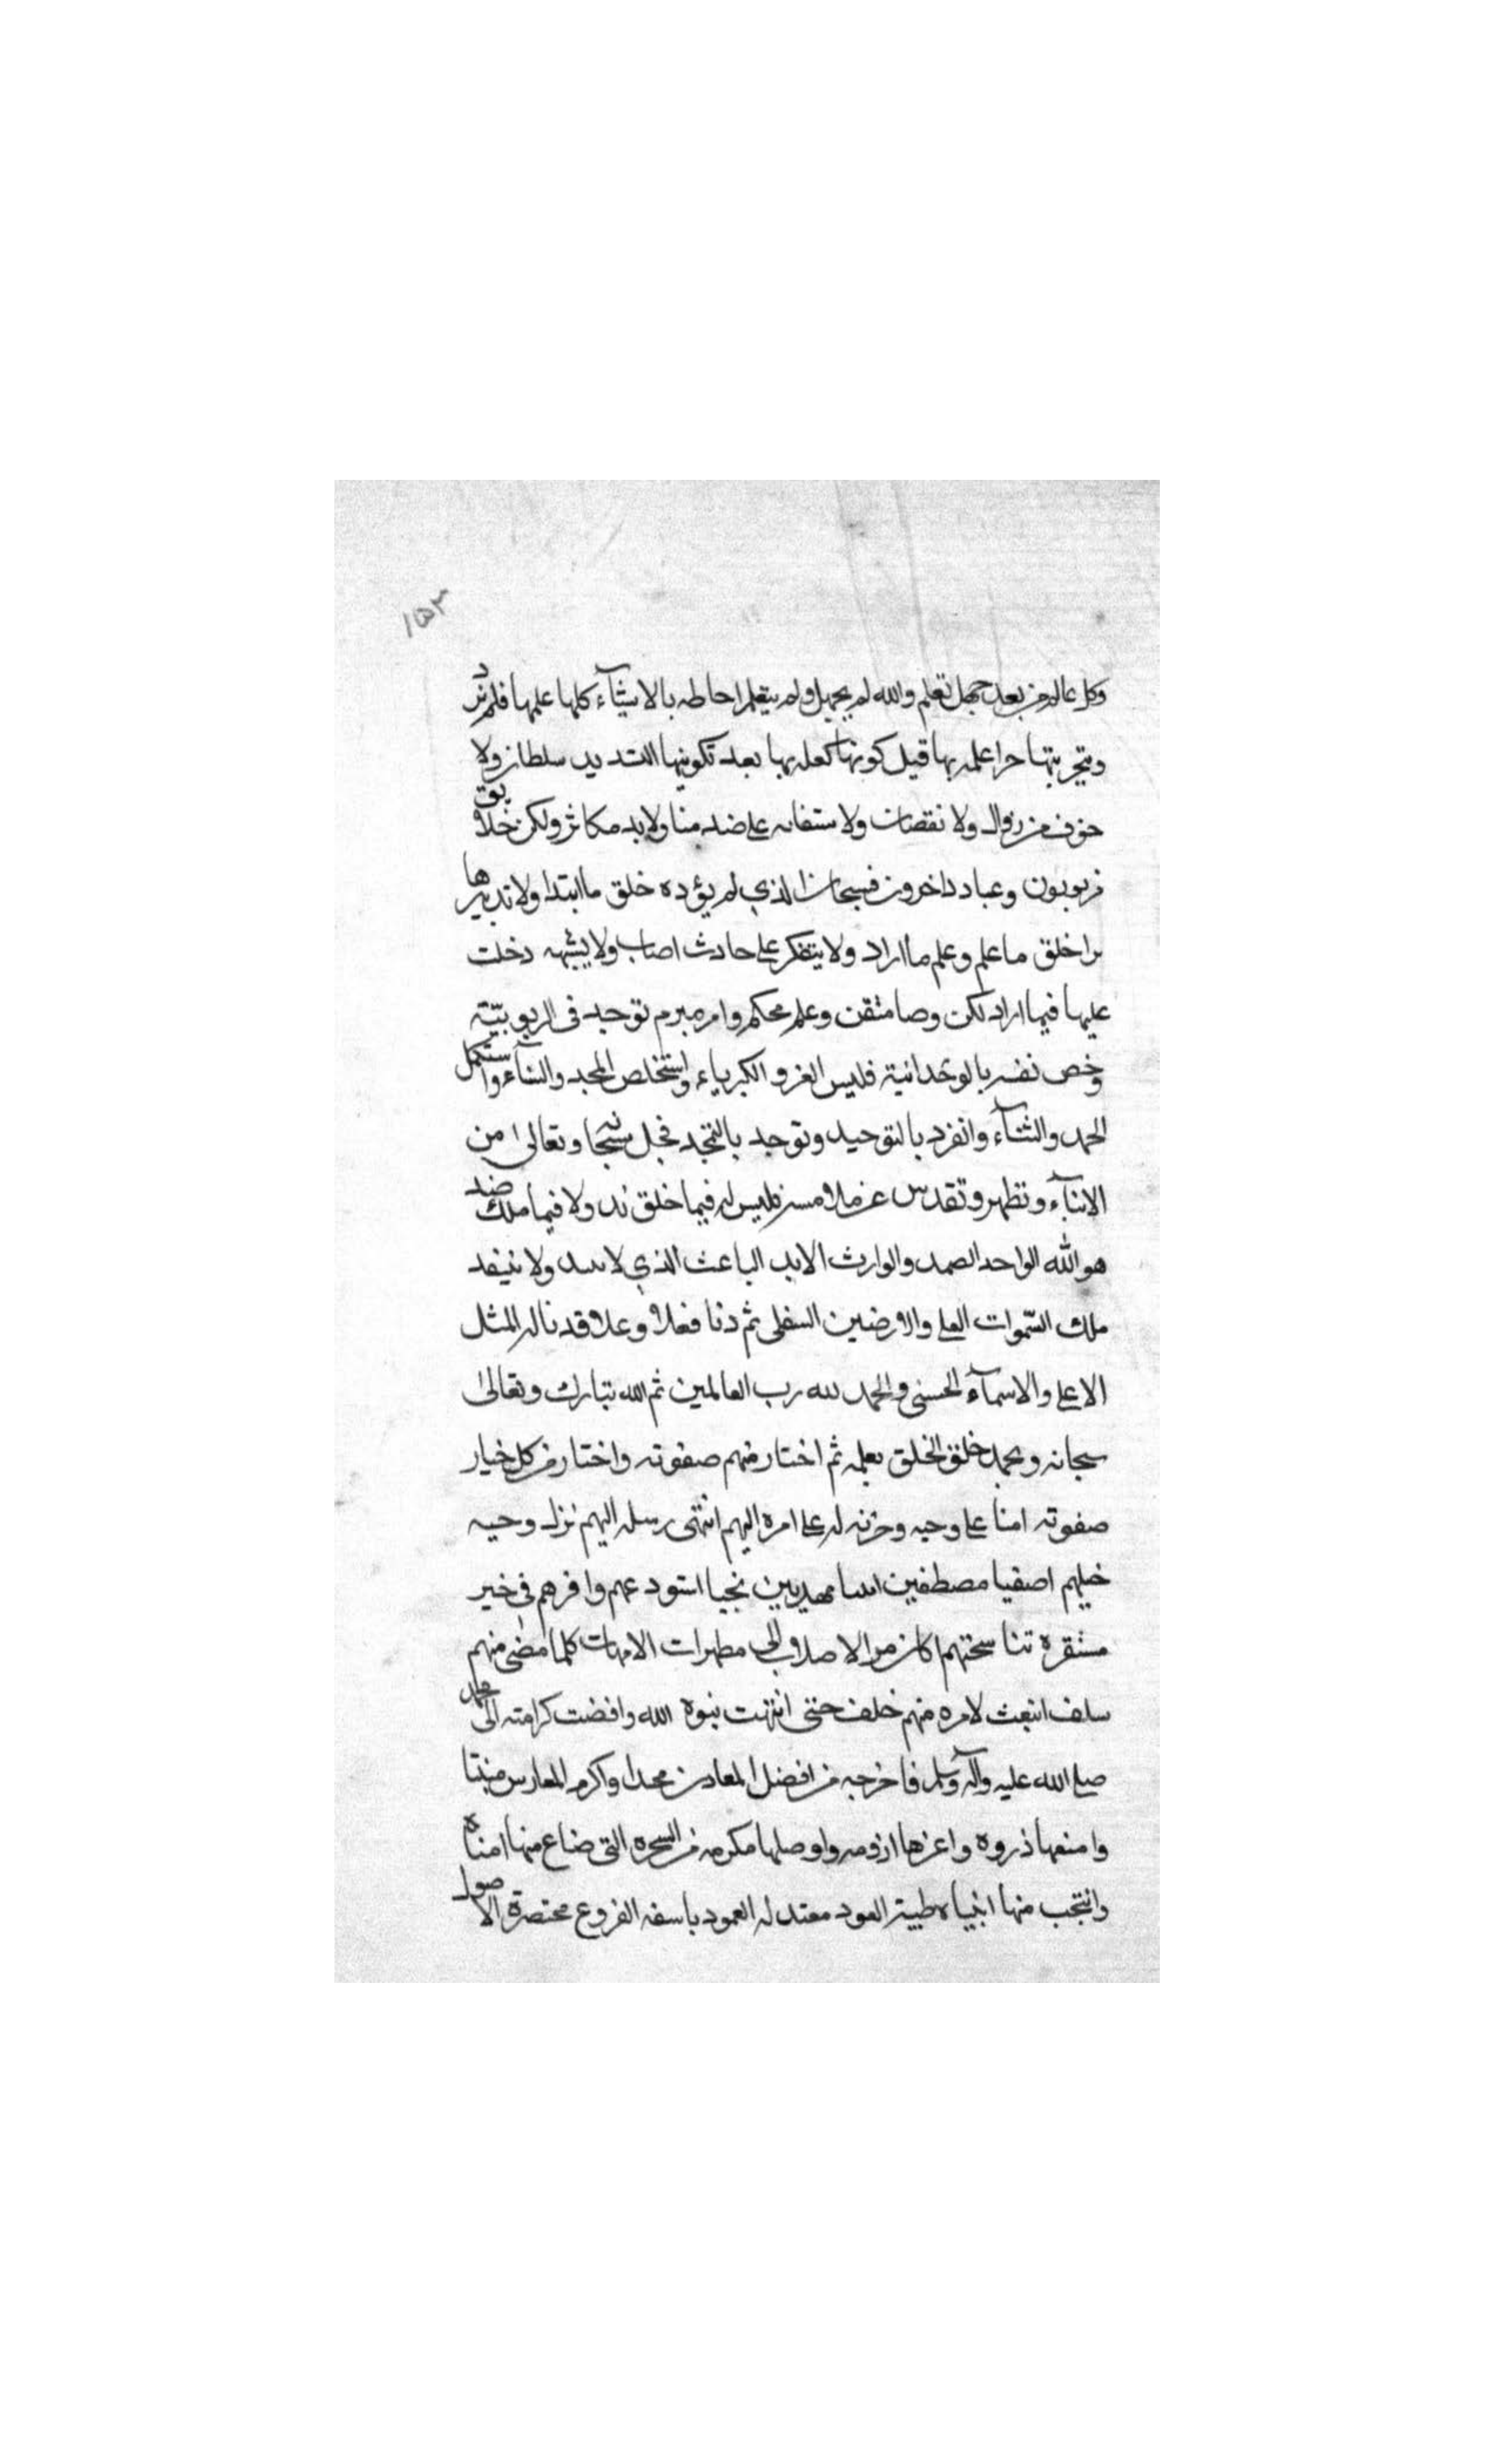 ١٥٣
وكل عالم من بعد جهل تعلم والله لم يجهل ولم يتعلم احاطه بالاشيآء كلها علمها فلم يزد
وتجربتها علمه بها قبل كونها كعلمه بها بعد تكوينها سلطان ولا
خوف من زوال ولا نقصان ولا على ضد منا ولابد مكاثر ولكن خلايق
مربوبون وعباد داخرون فسبحان الذي لم يؤده خلق ما ابتدا ولا تدبيرها
خلق ما علم وعلم ما اراد ولا يتفكر على حادث اصاب ولا يشبهه دخلت
عليها فيما اراد لكن متقن وعلم محكم وامر مبرم توحد فى الربوبيّة
وخص نفسه بالوحدانية فلبس العز والكبرياء واستخلص المجد والسنآء واستكمل
الحمد والثنآء وانفرد بالتوحيد وتوحد بالتمجد فجل سبحانه وتعالى من
الابنآء وتطهر وتقدس عن ملامسة فليس له فيما خلق ند ولا فيما ملك ضد
هو الله الواحد الصمد والوارث الابد الباعث الذي لا ولا ينفد
ملك السّموات العلى والارضين السفلى ثم دنا فعلا وعلا فدنا له المثل
الاعلى والاسمآء الحسنى والحمد لله رب العالمين ثم الله تبارك وتعالى
سبحانه وبحمده خلق الخلق بعلمه ثم اختار منهم صفوته واختار من كل خيار
صفوته امنا على وحيه وخزنه له على امره اليهم انتهى رسله اليهم نزل وحيه
اصفيا مصطفين مهديين نجبا استودعهم واقرهم فى خير
مستقره تناسختهم الاصلاب الى مطهرات الامهات كلما مضى منهم
سلف انبعث لامره منهم خلف حتى انتهت نبوه الله وافضت كرامته الى محمد
صلى الله عليه وآله وسلم فاخرجه من افضل المعادن محتدا واكرم المغارس منبتا
وامنعها ذروه واعزها ارومه واوصلها مكرمه من الشجره التى صاغ منها امناه
وانتجب منها انبياه طيبة العود معتدله العمود باسقه الفروع مخضرة الاصول